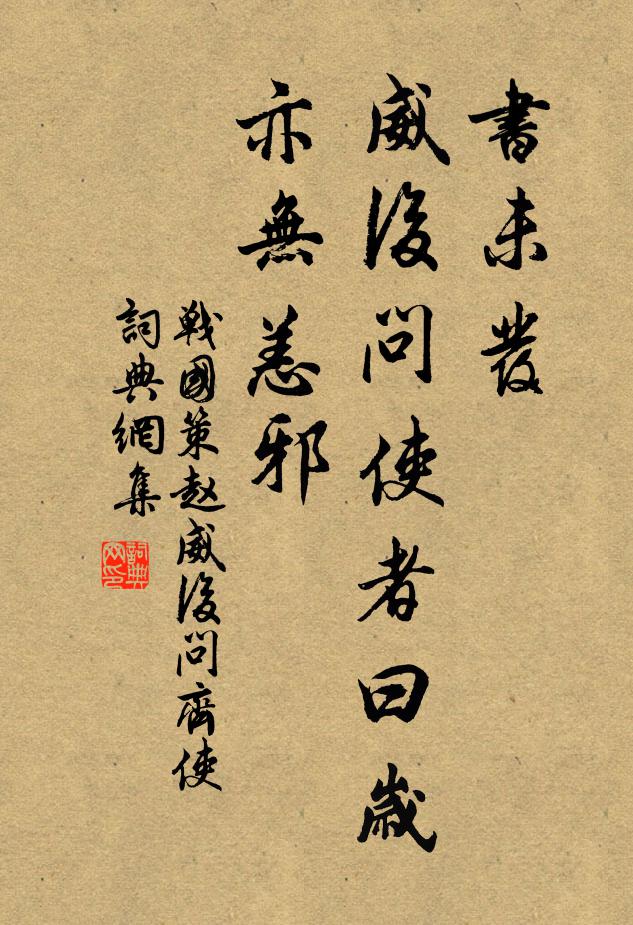 書未發
威後問使者曰歲
亦無恙邪
戰國策趙威後問齊使
詞典網集
詞典網印